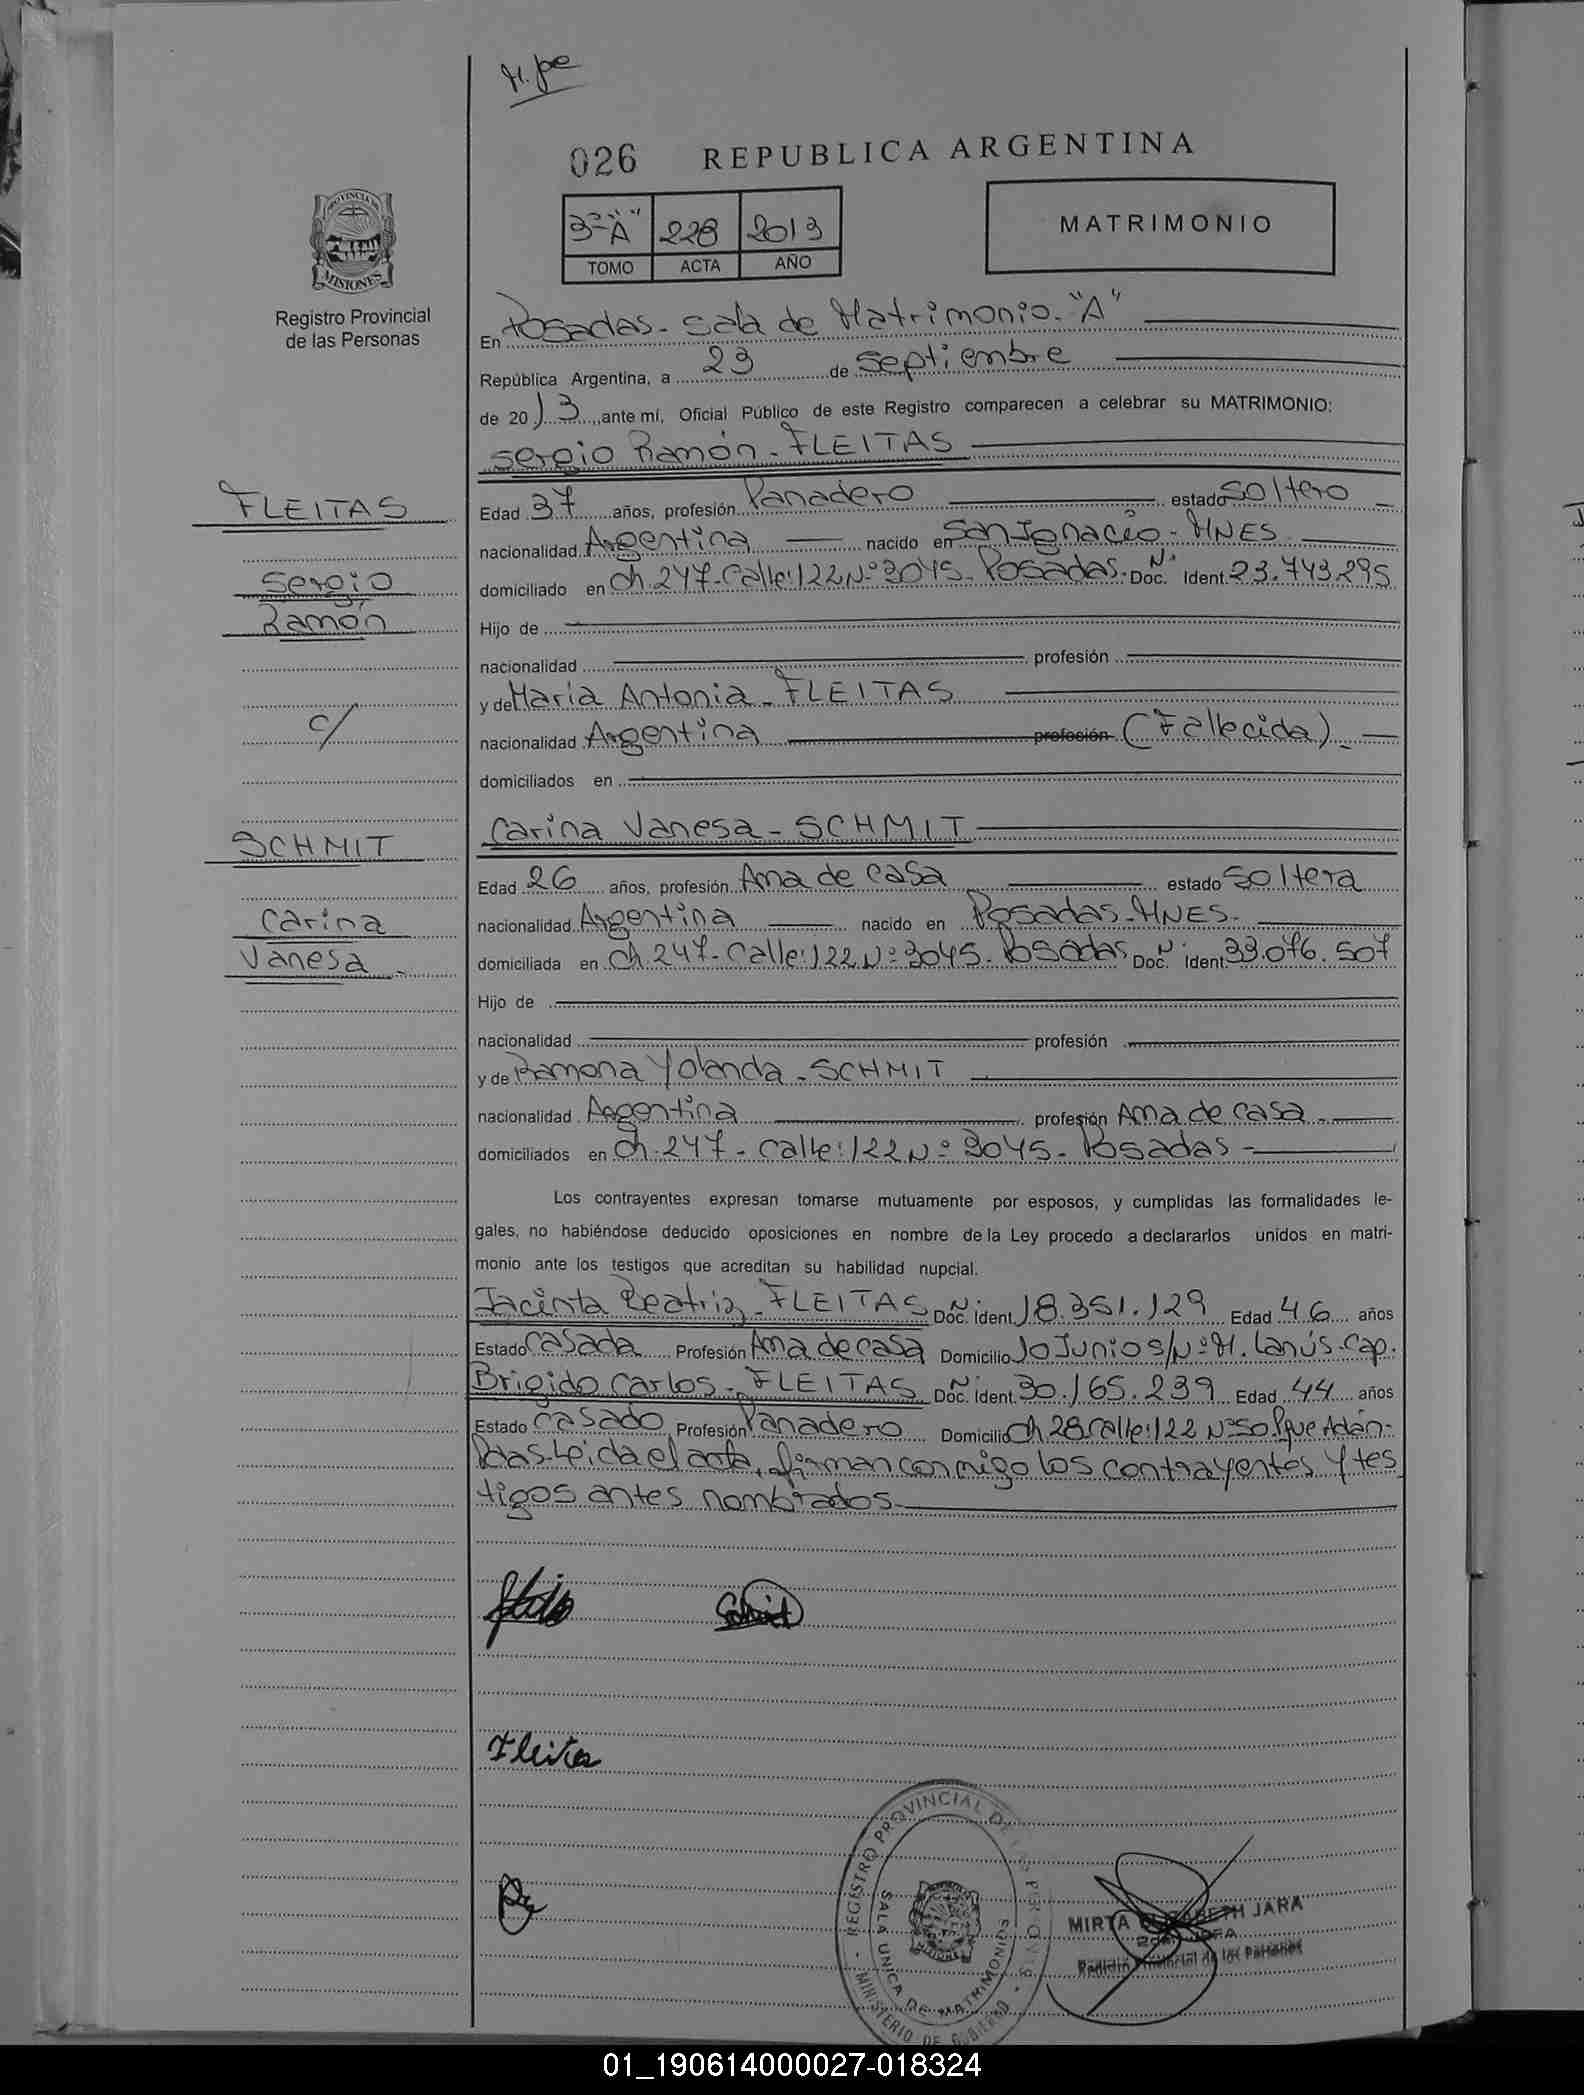 026 REPUBLICA ARGENTINA
3º "A" 228 2013
TOMO ACTA AÑO
MATRIMONIO
PROVINCIA DE MISIONES
Registro Provincial
de las Personas
En Posadas - Sala de Matrimonio - "A"
República Argentina, a 23 de Septiembre
de 2013, ante mí, Oficial Público de este Registro comparecen a celebrar su MATRIMONIO:
Sergio Ramón - FLEITAS
FLEITAS
Edad 37 años, profesión Panadero estado Soltero
nacionalidad Argentina nacido en San Ignacio - MNES
Sergio
domiciliado en Ch. 247 - Calle: 122 Nº 3045 - Posadas - Doc. N. Ident. 23.743.295
Ramón
Hijo de
nacionalidad profesión
y de María Antonia - FLEITAS
c/
nacionalidad Argentina profesión (Fallecida) -
domiciliados en
Carina Vanesa - SCHMIT
SCHMIT
Edad 26 años, profesión Ama de casa estado Soltera
Carina
nacionalidad Argentina nacido en Posadas - MNES -
Vanesa -
domiciliada en Ch. 247 - Calle: 122 Nº 3045 - Posadas Doc. N. ident. 33.076.507
Hijo de
nacionalidad profesión
y de Ramona Yolanda - SCHMIT
nacionalidad Argentina profesión Ama de casa -
domiciliados en Ch. 247 - Calle: 122 Nº 3045 - Posadas -
Los contrayentes expresan tomarse mutuamente por esposos, y cumplidas las formalidades le-
gales, no habiéndose deducido oposiciones en nombre de la Ley procedo a declararlos unidos en matri-
monio ante los testigos que acreditan su habilidad nupcial.
Jacinta Beatriz - FLEITAS Doc. N. ident. 18.351.129 Edad 46 años
Estado Casada Profesión Ama de casa Domicilio 10 Junio s/Nº M. Lanús - Cap.
Brigido Carlos - FLEITAS Doc. N. ident. 30.165.239 Edad 44 años
Estado Casado Profesión Panadero Domicilio Ch. 28 Calle: 122 Nº 50 Pque Adán -
Pdas - Leída el acta, firman conmigo los contrayentes y tes
tigos antes nombrados
Fleitas
REGISTRO PROVINCIAL DE LAS PERSONAS
SALA UNICA DE MATRIMONIOS
MINISTERIO DE GOBIERNO
MIRTA ELIZABETH JARA
2da. JEFA
Registro Provincial de las Personas
01_190614000027-018324